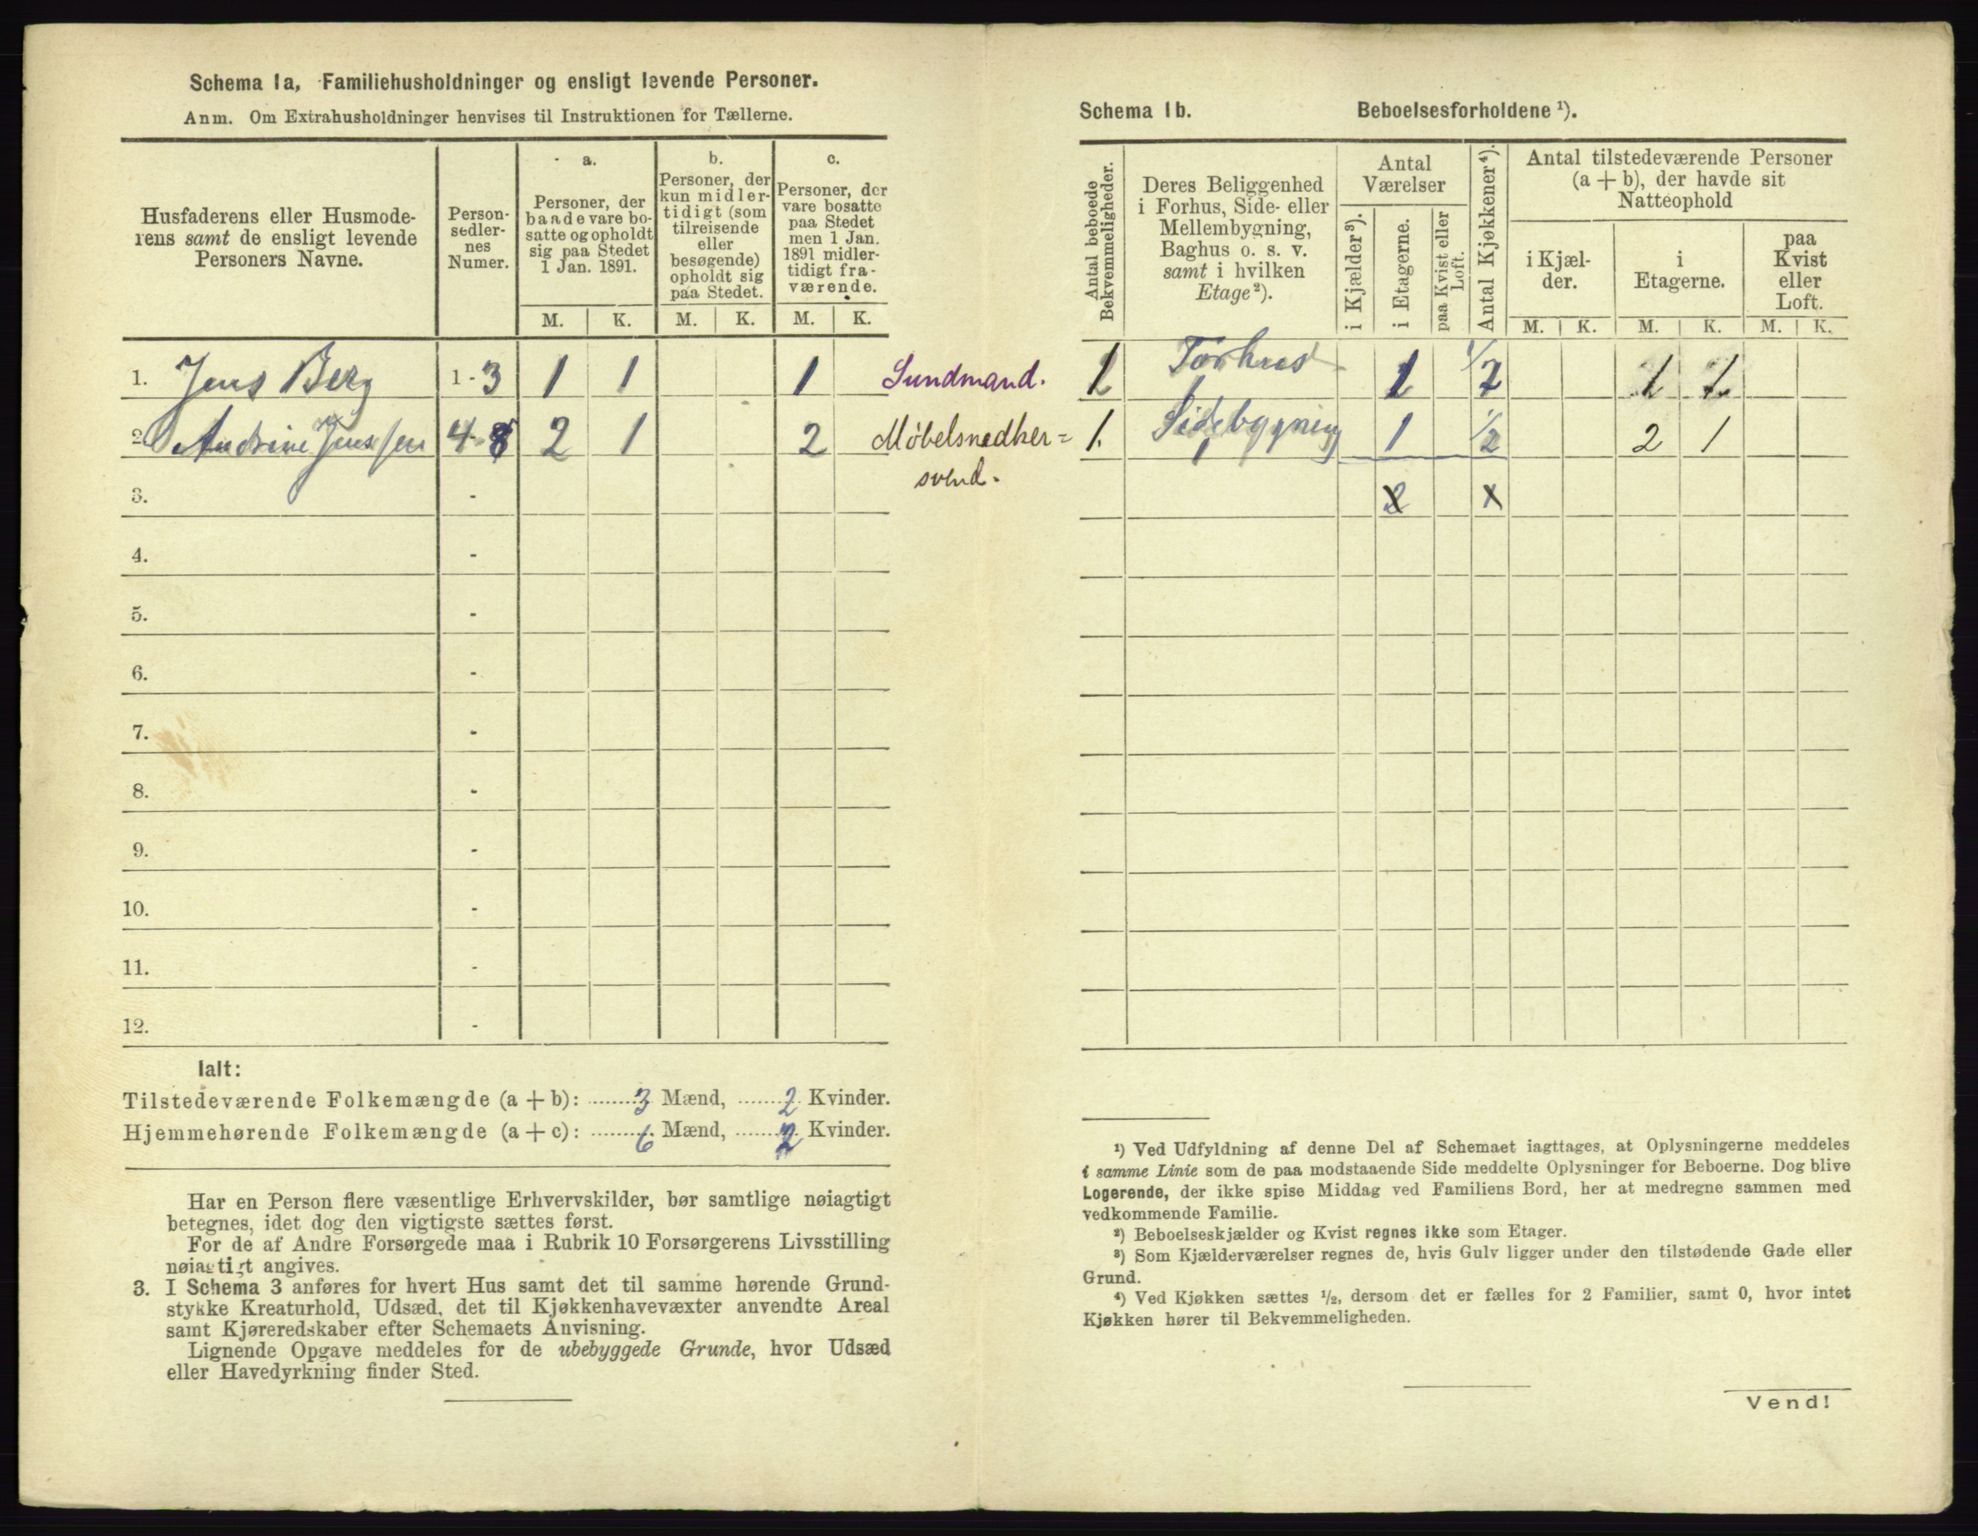 Schema 1a, Familiehusholdninger og ensligt levende Personer.
Anm. Om Extrahusholdninger henvises til Instruktionen for Tællerne.
Husfaderens eller Husmode-
rens samt de ensligt levende
Personers Navne.
Person-
sedler-
nes
Numer.
a.
Personer, der
baade vare bo-
satte og opholdt
sig paa Stedet
1 Jan. 1891.
b.
Personer, der
kun midler-
tidigt (som
tilreisende
eller
besøgende)
opholdt sig
paa Stedet.
c.
Personer, der
vare bosatte
paa Stedet
men 1 Jan.
1891 midler-
tidigt fra-
værende.
M. K. M. K. M. K.
1. Jens Berg 1-3 1 1 1 Sundmand.
2. Andrine Jenssen 4-8 2 1 2 Møbelsnedker=
svend.
3. -
4. -
5. -
6. -
7. -
8. -
9. -
10. -
11. -
12. -
Ialt:
Tilstedeværende Folkemængde (a + b): 3 Mænd, 2 Kvinder.
Hjemmehørende Folkemængde (a + c): 6 Mænd, 2 Kvinder.
Har en Person flere væsentlige Erhvervskilder, bør samtlige nøiagtigt
betegnes, idet dog den vigtigste sættes først.
For de af Andre Forsørgede maa i Rubrik 10 Forsørgerens Livsstilling
nøiagtigt angives.
3. I Schema 3 anføres for hvert Hus samt det til samme hørende Grund-
stykke Kreaturhold, Udsæd, det til Kjøkkenhavevæxter anvendte Areal
samt Kjøreredskaber efter Schemaets Anvisning.
Lignende Opgave meddeles for de ubebyggede Grunde, hvor Udsæd
eller Havedyrkning finder Sted.
Schema 1b. Beboelsesforholdene ¹).
Antal beboede
Bekvemmeligheder.
Deres Beliggenhed
i Forhus, Side- eller
Mellembygning,
Baghus o. s. v.
samt i hvilken
Etage²).
Antal
Værelser
i Kjælder³).
i Etagerne.
paa Kvist eller
Loft.
Antal Kjøkkener⁴).
Antal tilstedeværende Personer
(a + b), der havde sit
Natteophold
i Kjæl-
der.
i
Etagerne.
paa
Kvist
eller
Loft.
M. K. M. K. M. K.
1 Forhus 1 1/2 1 1
1. Sidebygning 1 1/2 2 1
2 x
¹) Ved Udfyldning af denne Del af Schemaet iagttages, at Oplysningerne meddeles
i samme Linie som de paa modstaaende Side meddelte Oplysninger for Beboerne. Dog blive
Logerende, der ikke spise Middag ved Familiens Bord, her at medregne sammen med
vedkommende Familie.
²) Beboelseskjælder og Kvist regnes ikke som Etager.
³) Som Kjælderværelser regnes de, hvis Gulv ligger under den tilstødende Gade eller
Grund.
⁴) Ved Kjøkken sættes 1/2, dersom det er fælles for 2 Familier, samt 0, hvor intet
Kjøkken hører til Bekvemmeligheden.
Vend!